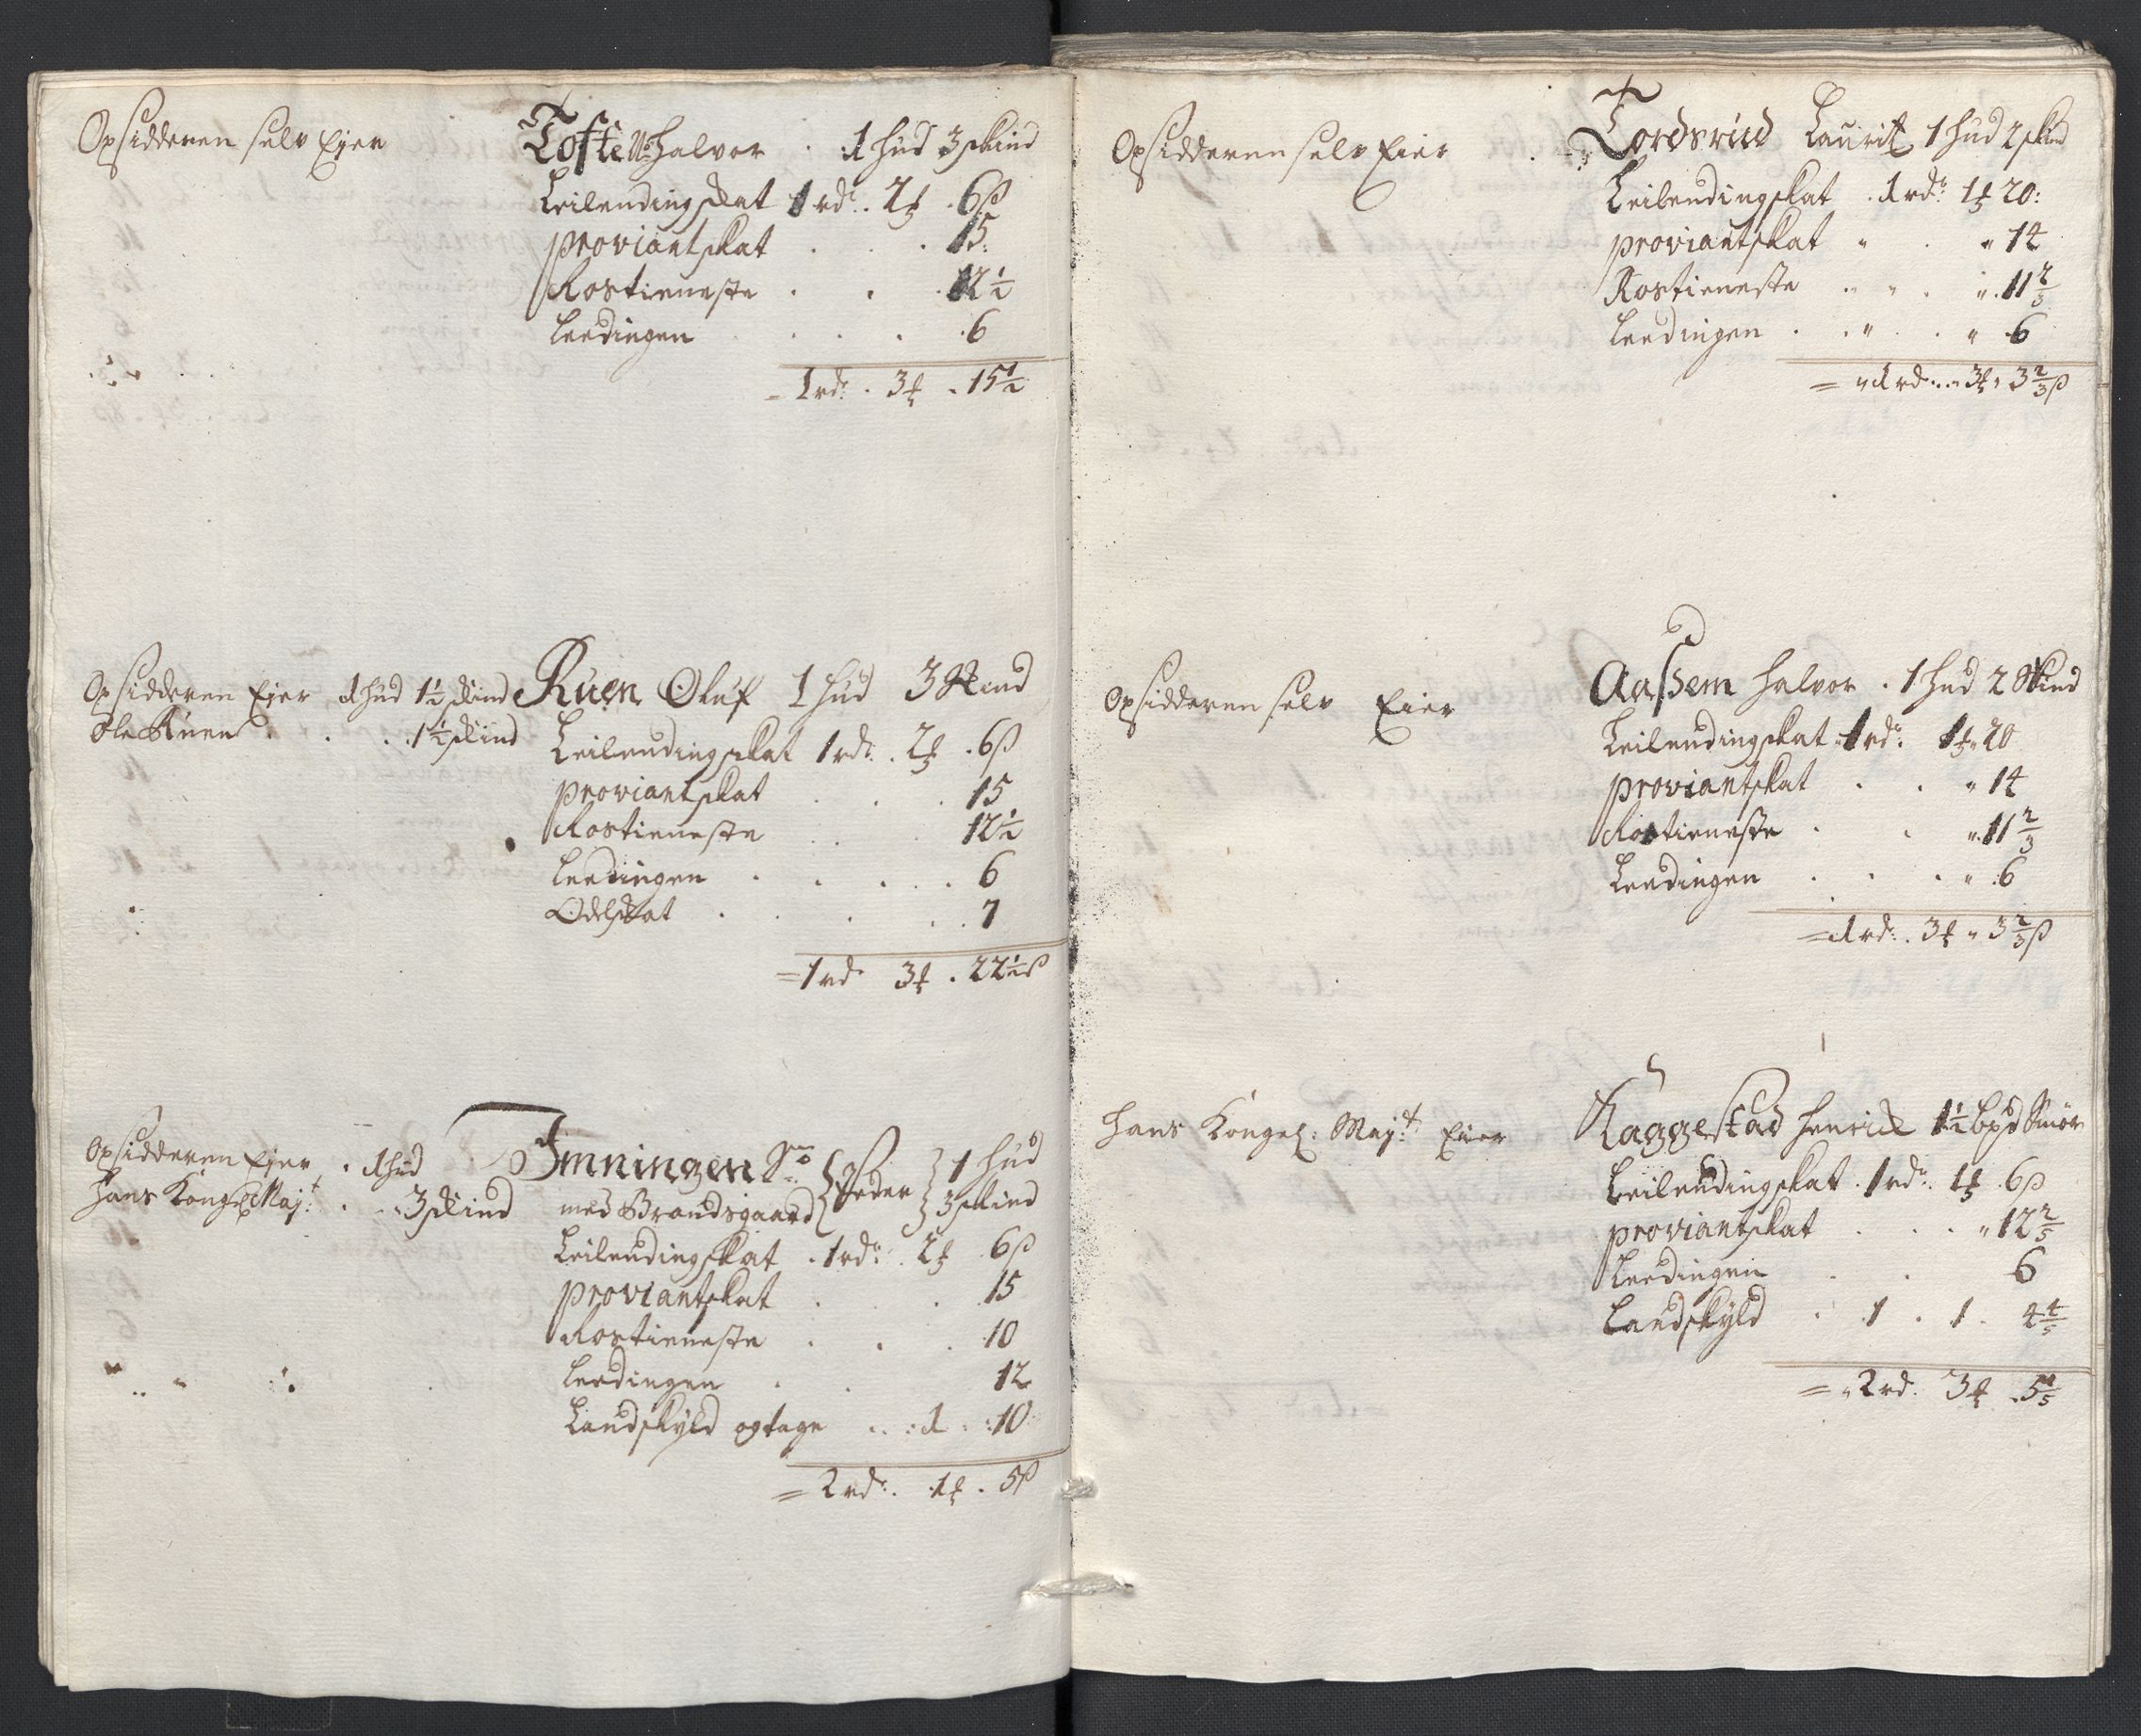 Opsidderen selv Ejer
Tofte No: Halvor . 1 hud 3 skind
Leilendingskat 1 rdr. 2 ℔ . 6 ß
proviantskat . . . 15:
Rostieneste . . . 12½
Leedingen . . . . 6
= 1 rdr . 3 ℔ . 15½
Opsidderen Ejer 1 hud 1½ skind
Ole Ruen . . . 1½ skind
Ruen Oluf 1 hud 3 Skind
Leilendingskat 1 rdr. . 2 ℔ . 6 ß
proviantskat . . . 15
Rostieneste . . 12½
Leedingen . . . . 6
Odelskat . . . . . 7
= 1 rdr 3 ℔ . 22½ ß
Opsidderen Ejer . 1 hud
Hans Kongel Maj:t . . 3 skind
Imningen Sø: { Peder } 1 hud
med Brandsgaard { } 3 skind
Leilendingskat . 1 rdr: . 2 ℔ 6 ß
proviantskat . . 15
Rostieneste . . . 10
Leedingen . . 12
Landskyld og tage . . : 1 . : 10
= 2 rdr. . 1 ℔ . 5 ß
Opsidderen selv Eier
Tordsrud Lauritz 1 hud 2 skind
Leilendingskat . 1 rdr: 1 ℔ 20:
proviantskat " . " 14
Rostieneste . " . " . 11⅔
Leedingen . . " . " 6
= " 1 rd . . " 3 ℔ " 3⅔ ß
Opsidderen selv Eier
Aassem Halvor . 1 hud 2 Skind
Leilendingskat " 1 rdr: 1 ℔ " 20
proviantskat . . " 14
Rostieneste . . " 11⅔
Leedingen . . . " . 6
= 1 rdr: . 3 ℔ " 3⅔ ß
Hans Kongel: May:t Eier
Raggestad Henrick 1½ bpd Smør
Leilendingskat . 1 rdr. 1 ℔ . 6 ß
proviantskat . . . " 12⅖
Leedingen . . 6
Landskyld . 1 . 1 . 4⅘
= " 2 rd. 3 ℔ . 5⅕